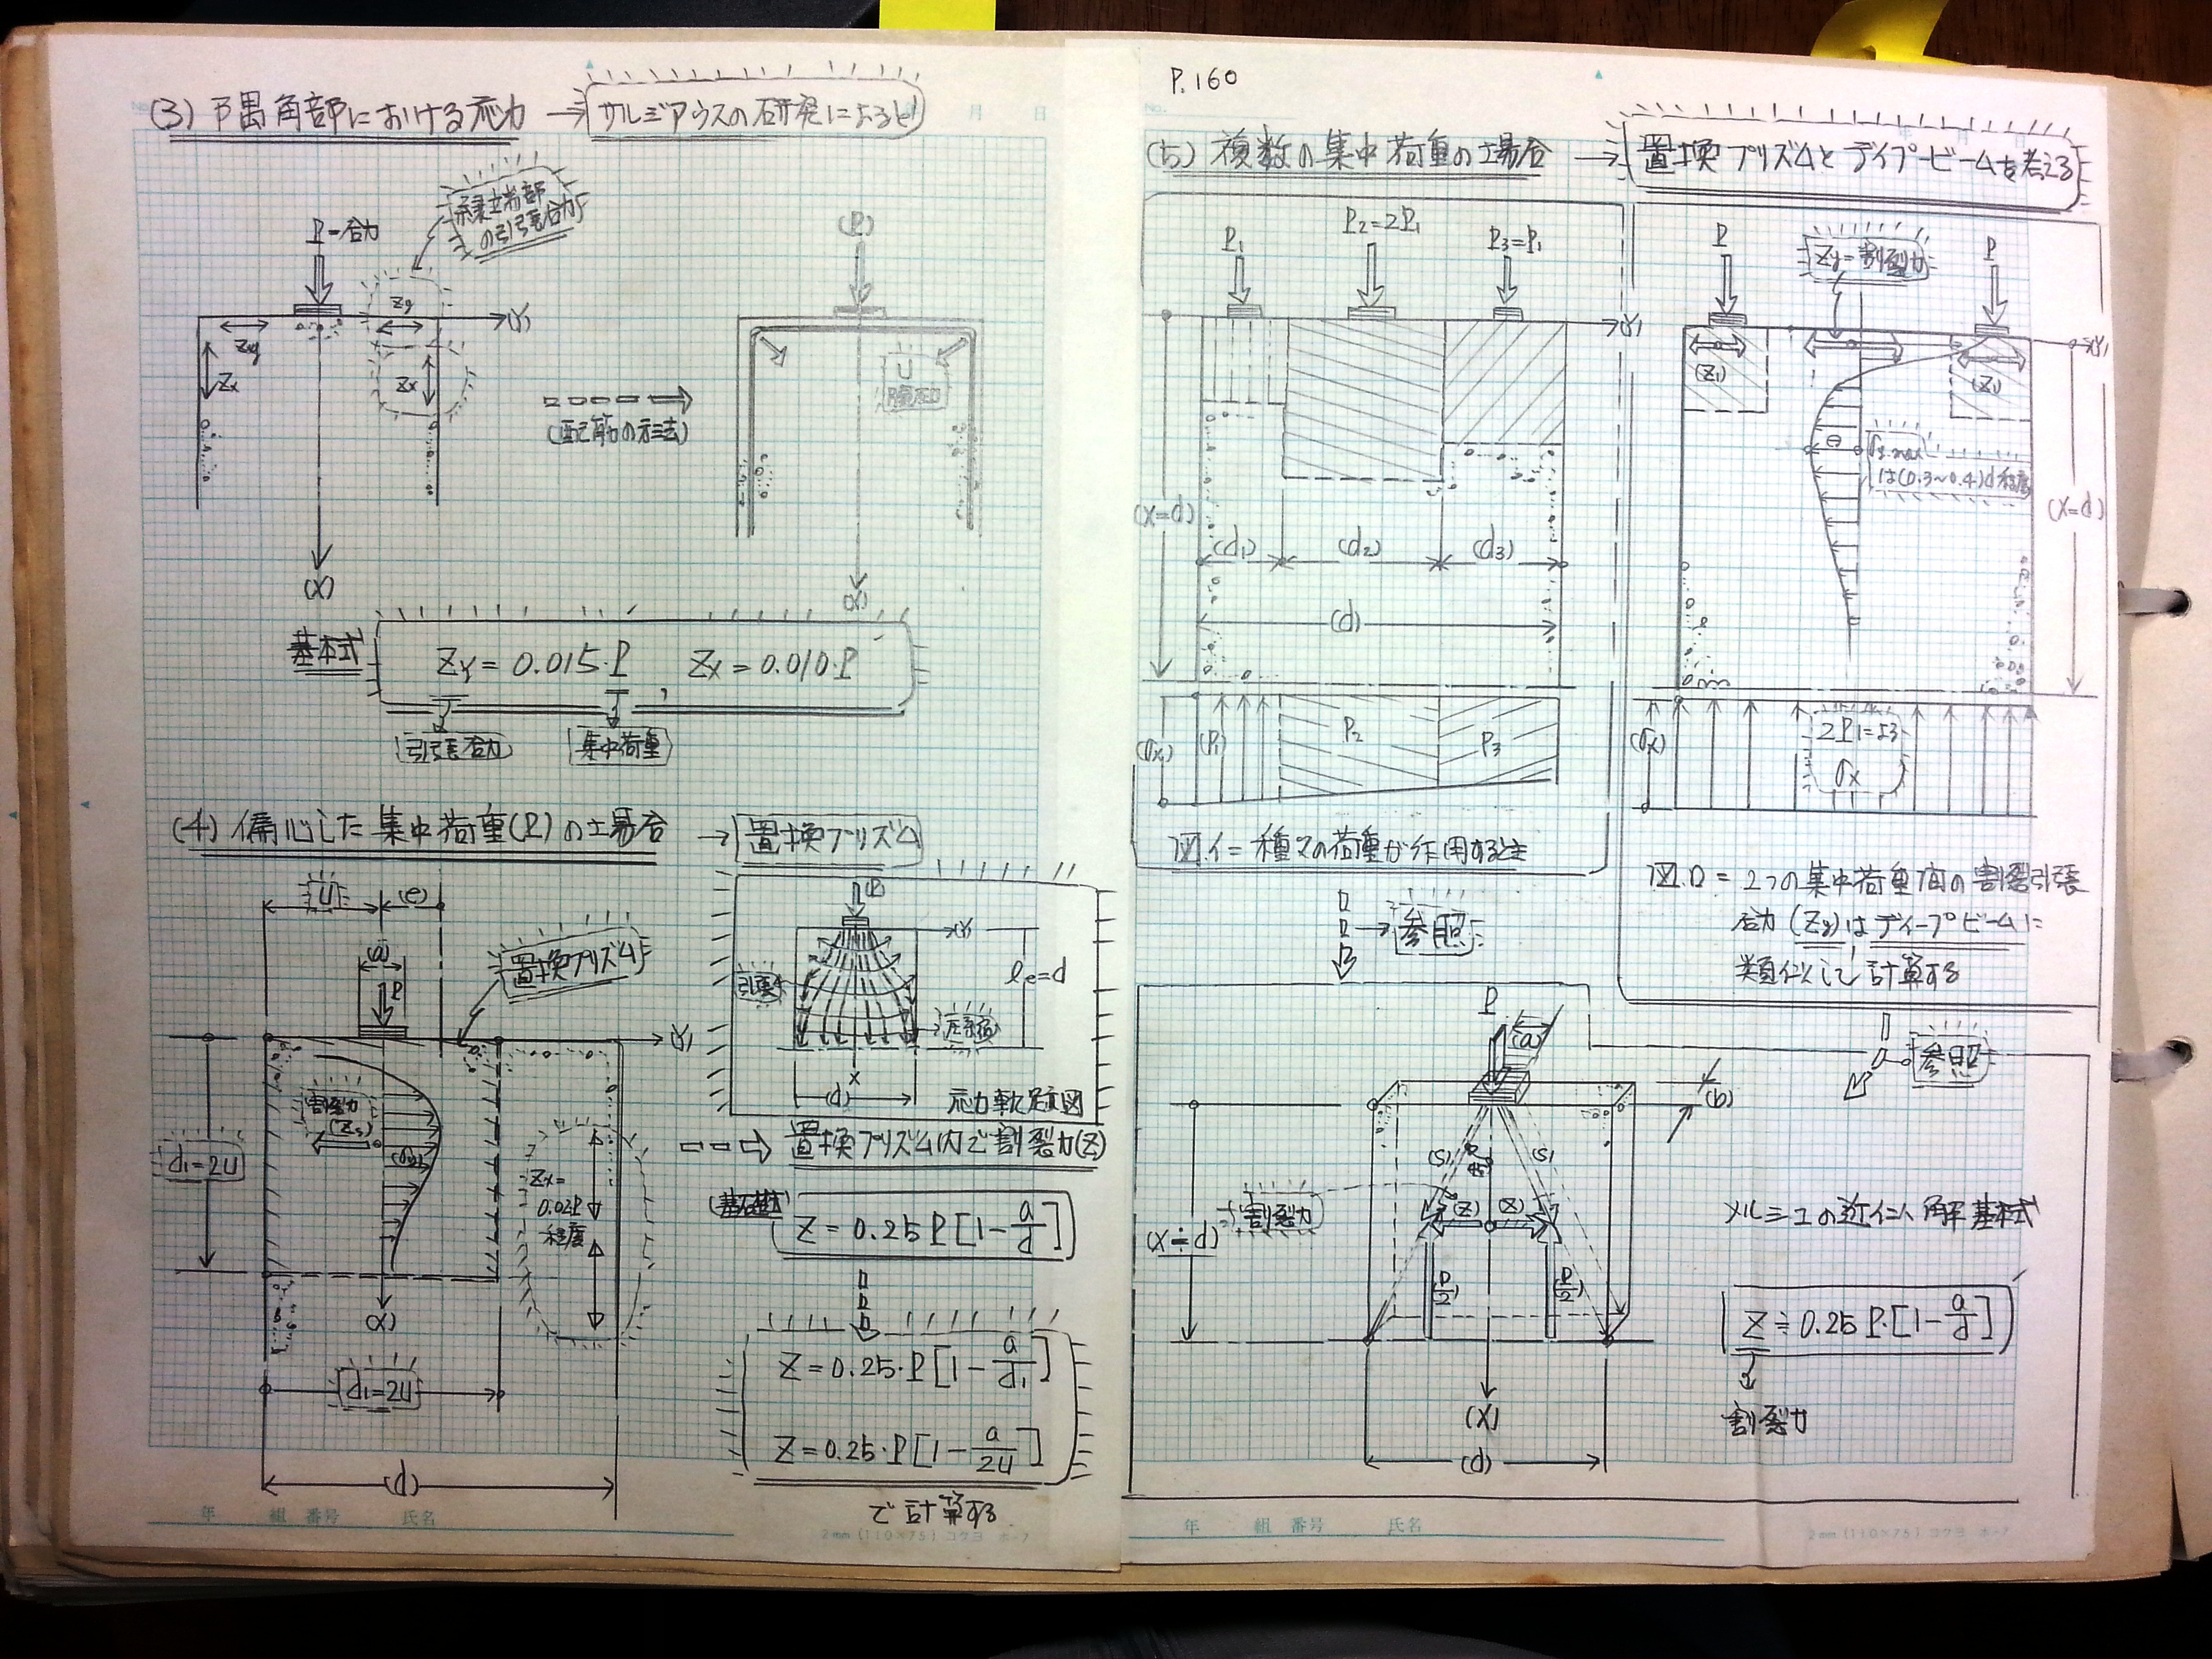 (3) 隅角部における応力 → サルジアウスの研究によると
P=合力
縁端部
の引張合力
Zy
Zy
(Y)
Zx
Zx
(X)
(配筋の方法)
(P)
U
(X)
基本式
Zy = 0.015·P , Zx = 0.010·P
引張合力
集中荷重
(4) 偏心した集中荷重(P)の場合 → 置換プリズム
U
(e)
(a)
P
置換プリズム
(Y)
割裂力
(Zs)
d1=2U
Zx=
0.02P
程度
(X)
d1=2U
(d)
(P)
(Y)
le=d
引張
圧縮
X
(d)
応力軌跡図
置換プリズム内で割裂力(Z)
Z = 0.25 P [1 - a/d]
Z = 0.25·P [1 - a/d1]
Z = 0.25·P [1 - a/2U]
で計算する
年 組 番号 氏名
2mm (110×75) コクヨ ホ-7
P.160
No.
(5) 複数の集中荷重の場合 → 置換プリズムとディープビームを考える
P1
P2=2P1
P3=P1
(Y)
(X=d)
(d1)
(d2)
(d3)
(d)
(σx)
(P1)
P2
P3
図.イ= 種々の荷重が作用する
P
Zy=割裂力
P
(Y)
(Z1)
(Z1)
σy.max
は(0.3~0.4)d程度
(X=d)
(σx)
2P1=よる
σx
図.ロ= 2つの集中荷重間の割裂引張
合力(Zy)はディープビームに
類似して計算する
参照
参照
P
(a)
(b)
(S)
(S)
割裂力
(Z)
(Z)
(X≒d)
P/2
P/2
(X)
(d)
メルシュの近似解基本式
Z ≒ 0.25 P·[1 - a/d]
割裂力
年 組 番号 氏名
2mm (110×75) コクヨ ホ-7